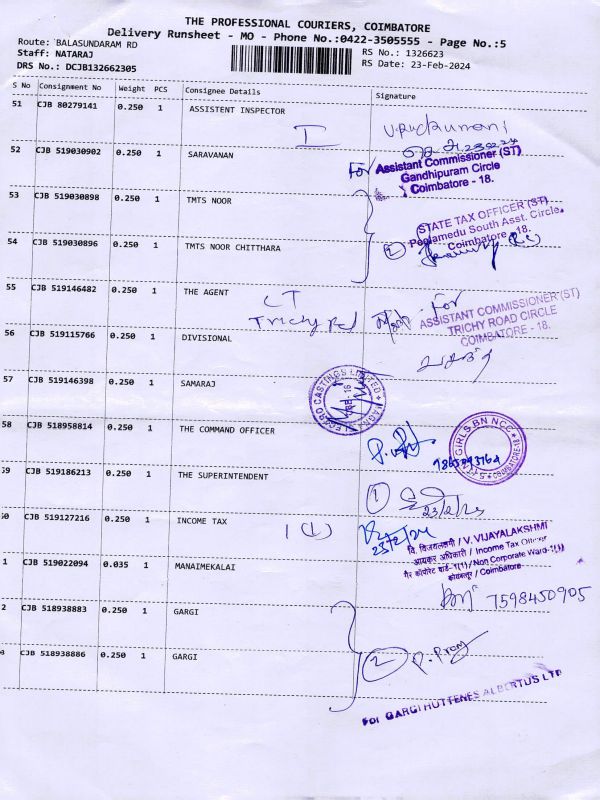 THE PROFESSIONAL COURIERS, COIMBATORE
Delivery Runsheet - MO - Phone No.:0422-3505555 - Page No.:5
Route: BALASUNDARAM RD
RS No.: 1326623
Staff: NATARAJ
RS Date: 23-Feb-2024
DRS No.: DCJB132662305
S No Consignment No Weight PCS Consignee Details Signature
51 CJB 80279141 0.250 1 ASSISTENT INSPECTOR
I V. Rukumani
52 CJB 519030902 0.250 1 SARAVANAN
For Assistant Commissioner (ST)
Gandhipuram Circle
Coimbatore - 18.
53 CJB 519030898 0.250 1 TMTS NOOR
STATE TAX OFFICER (ST)
Peelamedu South Asst. Circle,
Coimbatore - 18.
54 CJB 519030896 0.250 1 TMTS NOOR CHITTHARA
2
55 CJB 519146482 0.250 1 THE AGENT
CT
Trichy Rd
For
ASSISTANT COMMISSIONER (ST)
TRICHY ROAD CIRCLE
COIMBATORE - 18.
56 CJB 519115766 0.250 1 DIVISIONAL
57 CJB 519146398 0.250 1 SAMARAJ
CASTINGS LIMITED
58 CJB 518958814 0.250 1 THE COMMAND OFFICER
GIRLS BN NCC
COIMBATORE
59 CJB 519186213 0.250 1 THE SUPERINTENDENT
1
23/2/24
60 CJB 519127216 0.250 1 INCOME TAX
1 (1)
23/2/24
वि. विजयलक्ष्मी / V. VIJAYALAKSHMI
आयकर अधिकारी / Income Tax Officer
गैर कॉर्पोरेट वार्ड-1(1) / Non Corporate Ward-1(1)
कोयम्बत्तूर / Coimbatore
1 CJB 519022094 0.035 1 MANAIMEKALAI
7598450905
2 CJB 518938883 0.250 1 GARGI
2
3 CJB 518938886 0.250 1 GARGI
For GARGI HUTTENES ALBERTUS LTD